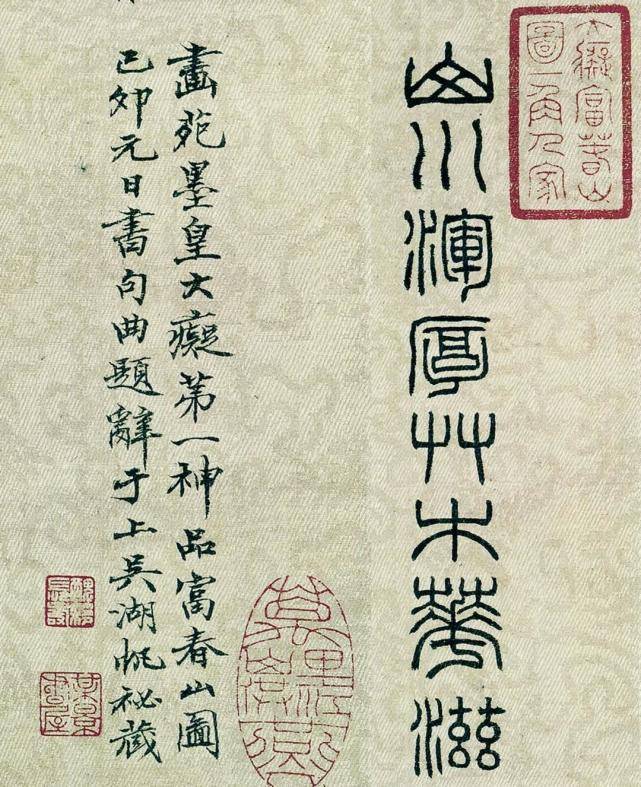 大癡富春山
圖一角人家
山川渾厚艸木華滋
畫苑墨皇大癡第一神品富春山圖
己卯元日書句曲題辭于上吳湖帆祕藏
某景
書屋